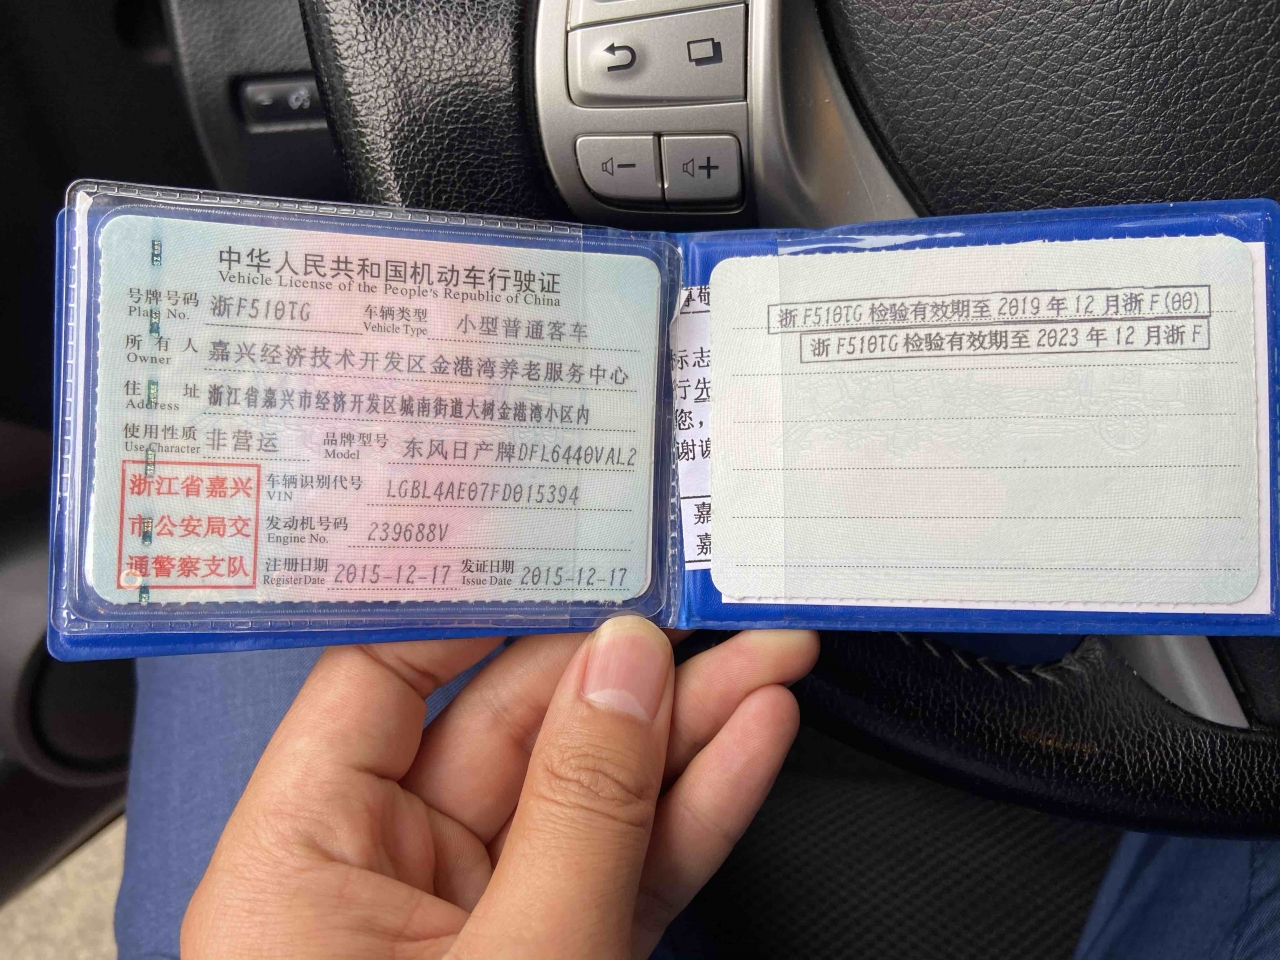 中华人民共和国机动车行驶证
Vehicle License of the People's Republic of China
号牌号码 浙F510TG 车辆类型 小型普通客车
Plate No. Vehicle Type
所有人 嘉兴经济技术开发区金港湾养老服务中心
Owner
住址 浙江省嘉兴市经济开发区城南街道大树金港湾小区内
Address
使用性质 非营运 品牌型号 东风日产牌DFL6440VAL2
Use Character Model
浙江省嘉兴
市公安局交
通警察支队
车辆识别代号 LGBL4AE07FD015394
VIN
发动机号码 239688V
Engine No.
注册日期 2015-12-17 发证日期 2015-12-17
Register Date Issue Date
标志
行先
您，
谢谢
嘉
嘉
浙F510TG检验有效期至2019年12月浙F(00)
浙F510TG检验有效期至2023年12月浙F